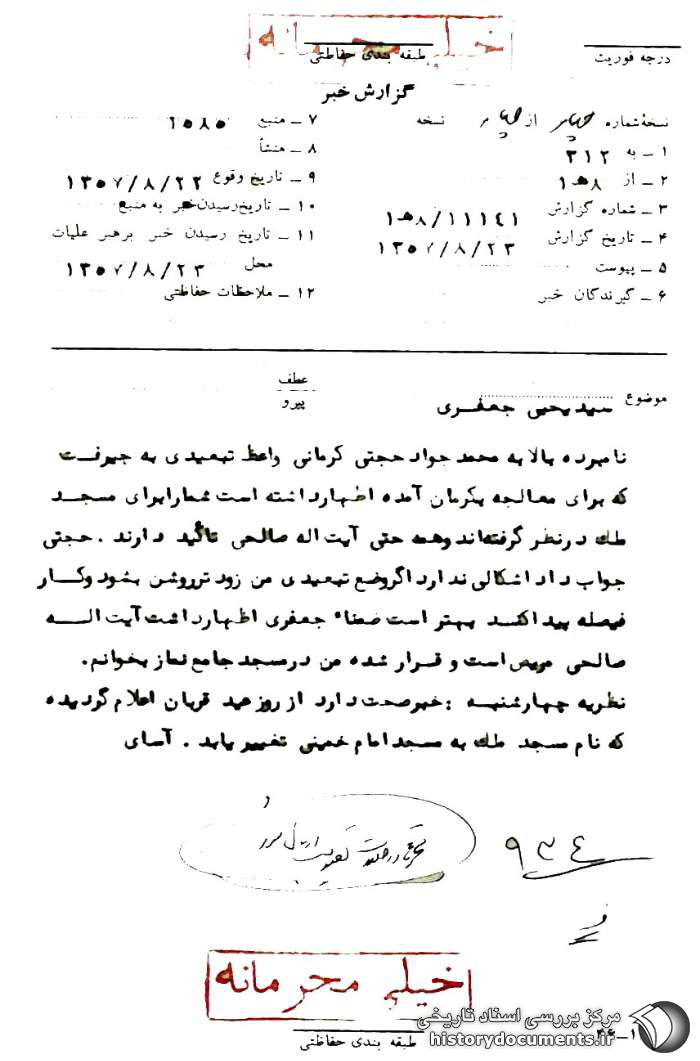 خیلی محرمانه
درجه فوریت
طبقه بندی حفاظتی
گزارش خبر
نسخهٔ شماره از نسخه
۱ ـ به ۳۱۲
۲ ـ از ۸ه‍۱
۳ ـ شماره گزارش ۸/۱۱۱۴۱ه‍۱
۴ ـ تاریخ گزارش ۱۳۵۷/۸/۲۳
۵ ـ پیوست
۶ ـ گیرندگان خبر
۷ ـ منبع ۱۵۸۵
۸ ـ منشأ
۹ ـ تاریخ وقوع ۱۳۵۷/۸/۲۲
۱۰ ـ تاریخ رسیدن خبر به منبع
۱۱ ـ تاریخ رسیدن خبر برهبر عملیات
محل ۱۳۵۷/۸/۲۳
۱۲ ـ ملاحظات حفاظتی
موضوع سیدیحیی جعفری
عطف
پیرو
نامبرده بالا به محمد جواد حجتی کرمانی واعظ تبعیدی به جیرفت
که برای معالجه بکرمان آمده اظهارداشته است شمارابرای مسجد
ملک درنظر گرفته‌اند وهمه حتی آیت اله صالحی تاکید دارند . حجتی
جواب داد اشکالی ندارد اگروضع تبعیدی من زود تر روشن بشود وکار
فیصله پیدا کند بهتر است ضمناء جعفری اظهارداشت آیت الــه
صالحی مریض است و قرار شده من درمسجد جامع نماز بخوانم.
نظریه چهارشنبه : خبرصحت دارد از روز عید قربان اعلام گردیده
که نام مسجد ملک به مسجد امام خمینی تغییر یابد . آسای
۹۳۴
خیلی محرمانه
طبقه بندی حفاظتی
۳۶-۱
مرکز بررسی اسناد تاریخی
historydocuments.ir